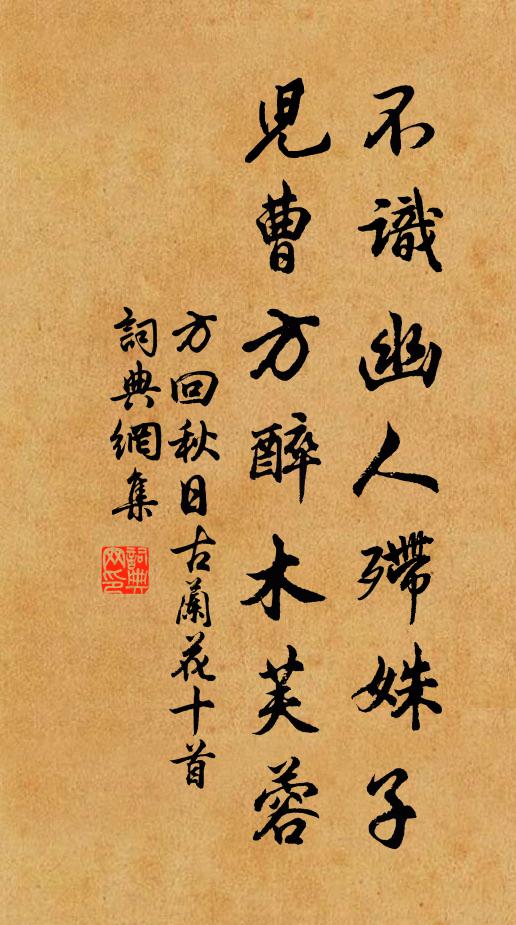 不識幽人殢姝子
兒曹方醉木芙蓉
方回秋日古蘭花十首
詞典網集
詞典网印